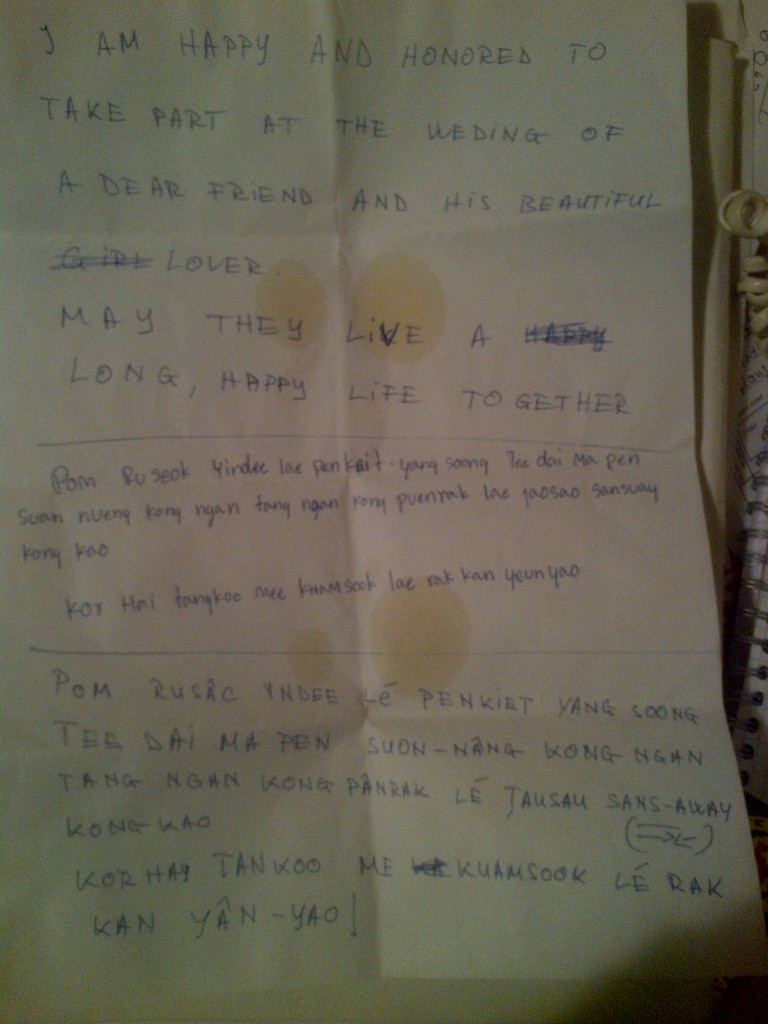 I AM HAPPY AND HONORED TO
TAKE PART AT THE WEDING OF
A DEAR FRIEND AND HIS BEAUTIFUL
GIRL LOVER.
MAY THEY LIVE A HAPPY
LONG, HAPPY LIFE TOGETHER
Pom Ruseok Yindee lae penkait-yang soong Tee dai Ma pen
Suan nueng kong ngan tang ngan kong puenrak lae jaosao sansuay
kong kao
Kor Hai tangkoo mee KHAMsook lae rak kan yeunyao
POM RUSÂC YNDEE LÉ PENKIET YANG SOONG
TEE DAI MA PEN SUON-NÂNG KONG NGAN
TANG NGAN KONG PÂNRAK LÉ ŢAUSAU SANS-AWAY
KONG KAO
KOR HAY TANKOO ME KUAMSOOK LÉ RAK
KAN YÂN-YAO!